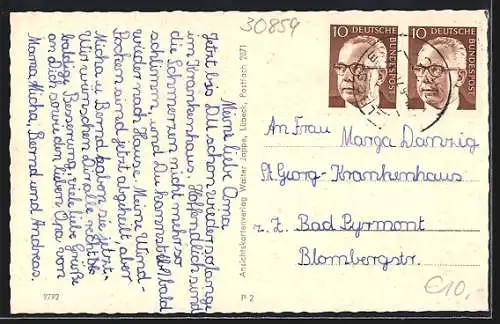 30859
Meine liebe Oma
Jetzt bist Du schon wieder so lange
im Krankenhaus. Hoffendlich sind
die Schmerzen nicht mehr so
schlimm, und Du kannst bald
wieder nach Hause. Meine Wind-
Pocken sind jetzt abgeheilt, aber
Micha u. Bernd haben sie jetzt.
Wir wünschen Dir alle recht
baldige Besserung, viele liebe Grüße
an Dich sowie den lieben Opa von
Mama, Micha, Bernd und Andreas.
9792
P 2
Ansichtskartenverlag Walter Jappe, Lübeck, Postfach 2071
10 DEUTSCHE
BUNDESPOST
10 DEUTSCHE
BUNDESPOST
An Frau Marga Danzig
St. Georg-Krankenhaus
z. Z. Bad Pyrmont
Blombergstr.
€10,-